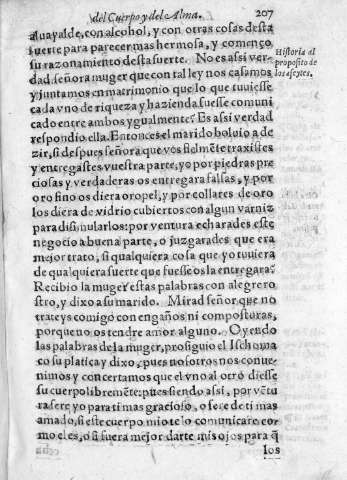 del Cuerpo y del Alma. 207
aluayalde, con alcohol, y con otras cosas desta
suerte para parecer mas hermosa, y començo
su razonamiento desta suerte. No es assi ver-
dad señora muger que con tal ley nos casamos
y juntamos en matrimonio que lo que tuuiesse
cada vno de riqueza y hazienda fuesse comuni
cado entre ambos ygualmente? Es assi verdad
respondio ella. Entonces el marido boluio a de
zir, si despues señora que vos fielmẽte traxistes
y entregastes vuestra parte, yo por piedras pre
ciosas y verdaderas os entregara falsas, y por
oro fino os diera oropel, y por collares de oro
los diera de vidrio cubiertos con algun varniz
para dissimularlos: por ventura echarades este
negocio a buena parte, o juzgarades que era
mejor trato, si qualquiera cosa que yo tuuiera
de qualquiera suerte que fuesse os la entregara?
Recibio la muger estas palabras con alegre ro
stro, y dixo a su marido. Mirad señor que no
trateys comigo con engaños ni composturas,
porque no os tendre amor alguno. Oyendo
las palabras de la muger, prosiguio el Ischoma
co su platica y dixo, pues nosotros nos conue-
nimos y concertamos que el vno al otro diesse
su cuerpo libremẽte: pues siendo assi, por vẽtu
ra sere yo para ti mas gracioso, o sere de ti mas
amado, si este cuerpo mio te lo comunicare co-
mo el es, o si fuera mejor darte mis ojos para q̃
los
Historia al
proposito de
los afeytes.